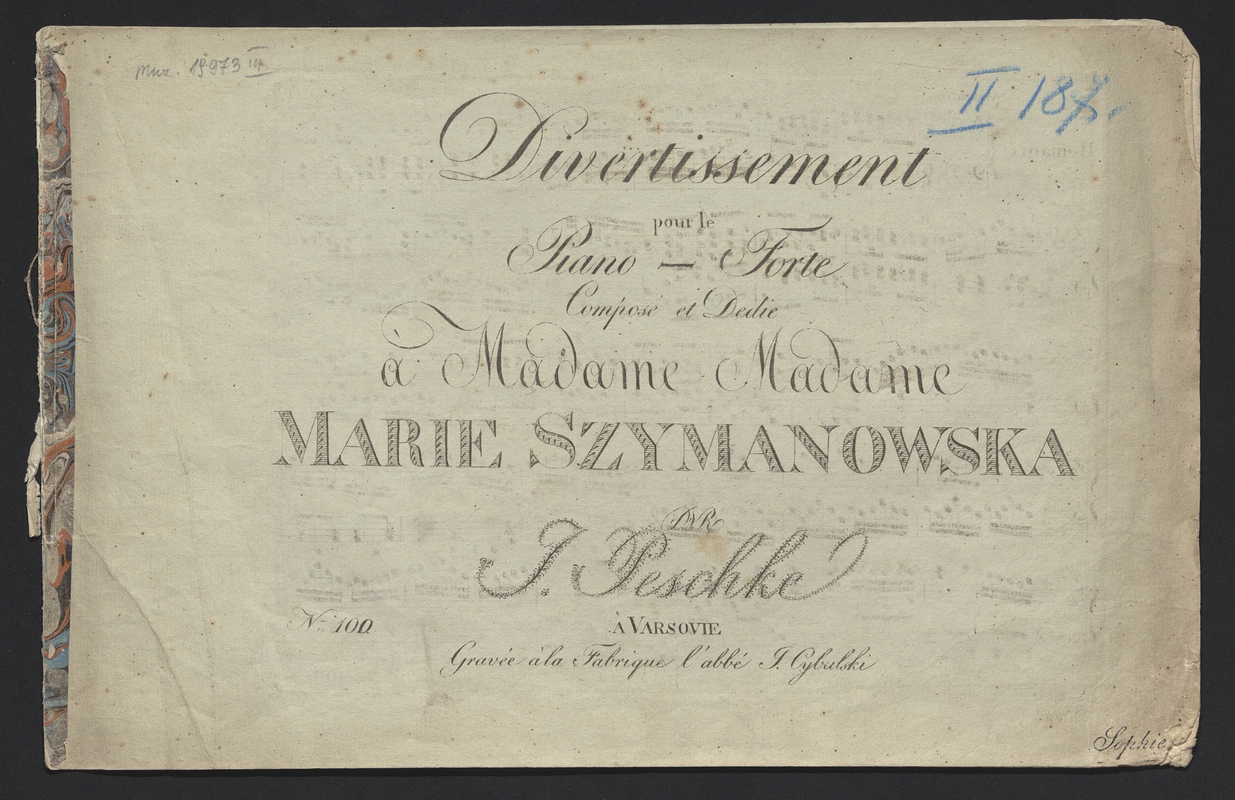 Muz. 19973 III
II 187.
Divertissement
pour le
Piano — Forte
Composé et Dedie
à Madame Madame
MARIE SZYMANOWSKA
PAR
J. Peschke
No 100
À VARSOVIE
Gravée à la Fabrique l'abbé I. Cybulski
Sophie